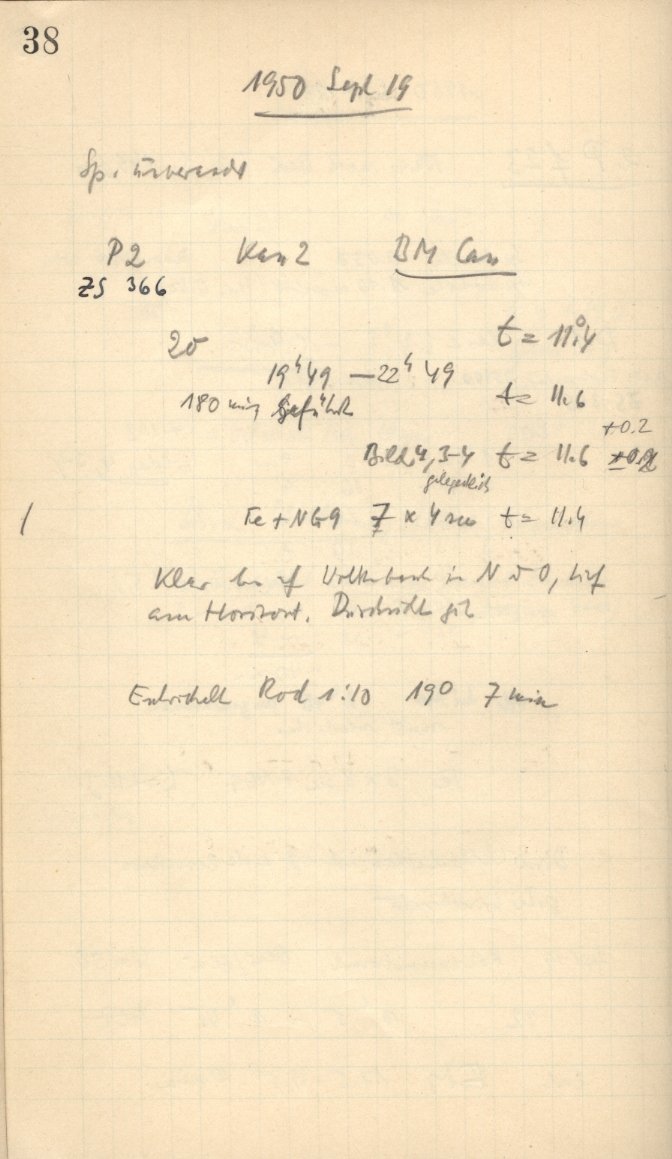 38
1950 Sept 19
Sp.
P2 Kam 2 BM Cam
ZS 366
20 t = 11°.4
19ʰ49 — 22ʰ49
180 min geführt t = 11.6
+0.2
Bild 4, 3-4 t = 11.6
gelegentlich
/ Fe + NG9 7 x 4 sec t = 11.4
Klar bis auf Wolkenbank in N O, tief
am Horizont. Durchsicht gut
Entwickelt Rod 1:10 19° 7 min